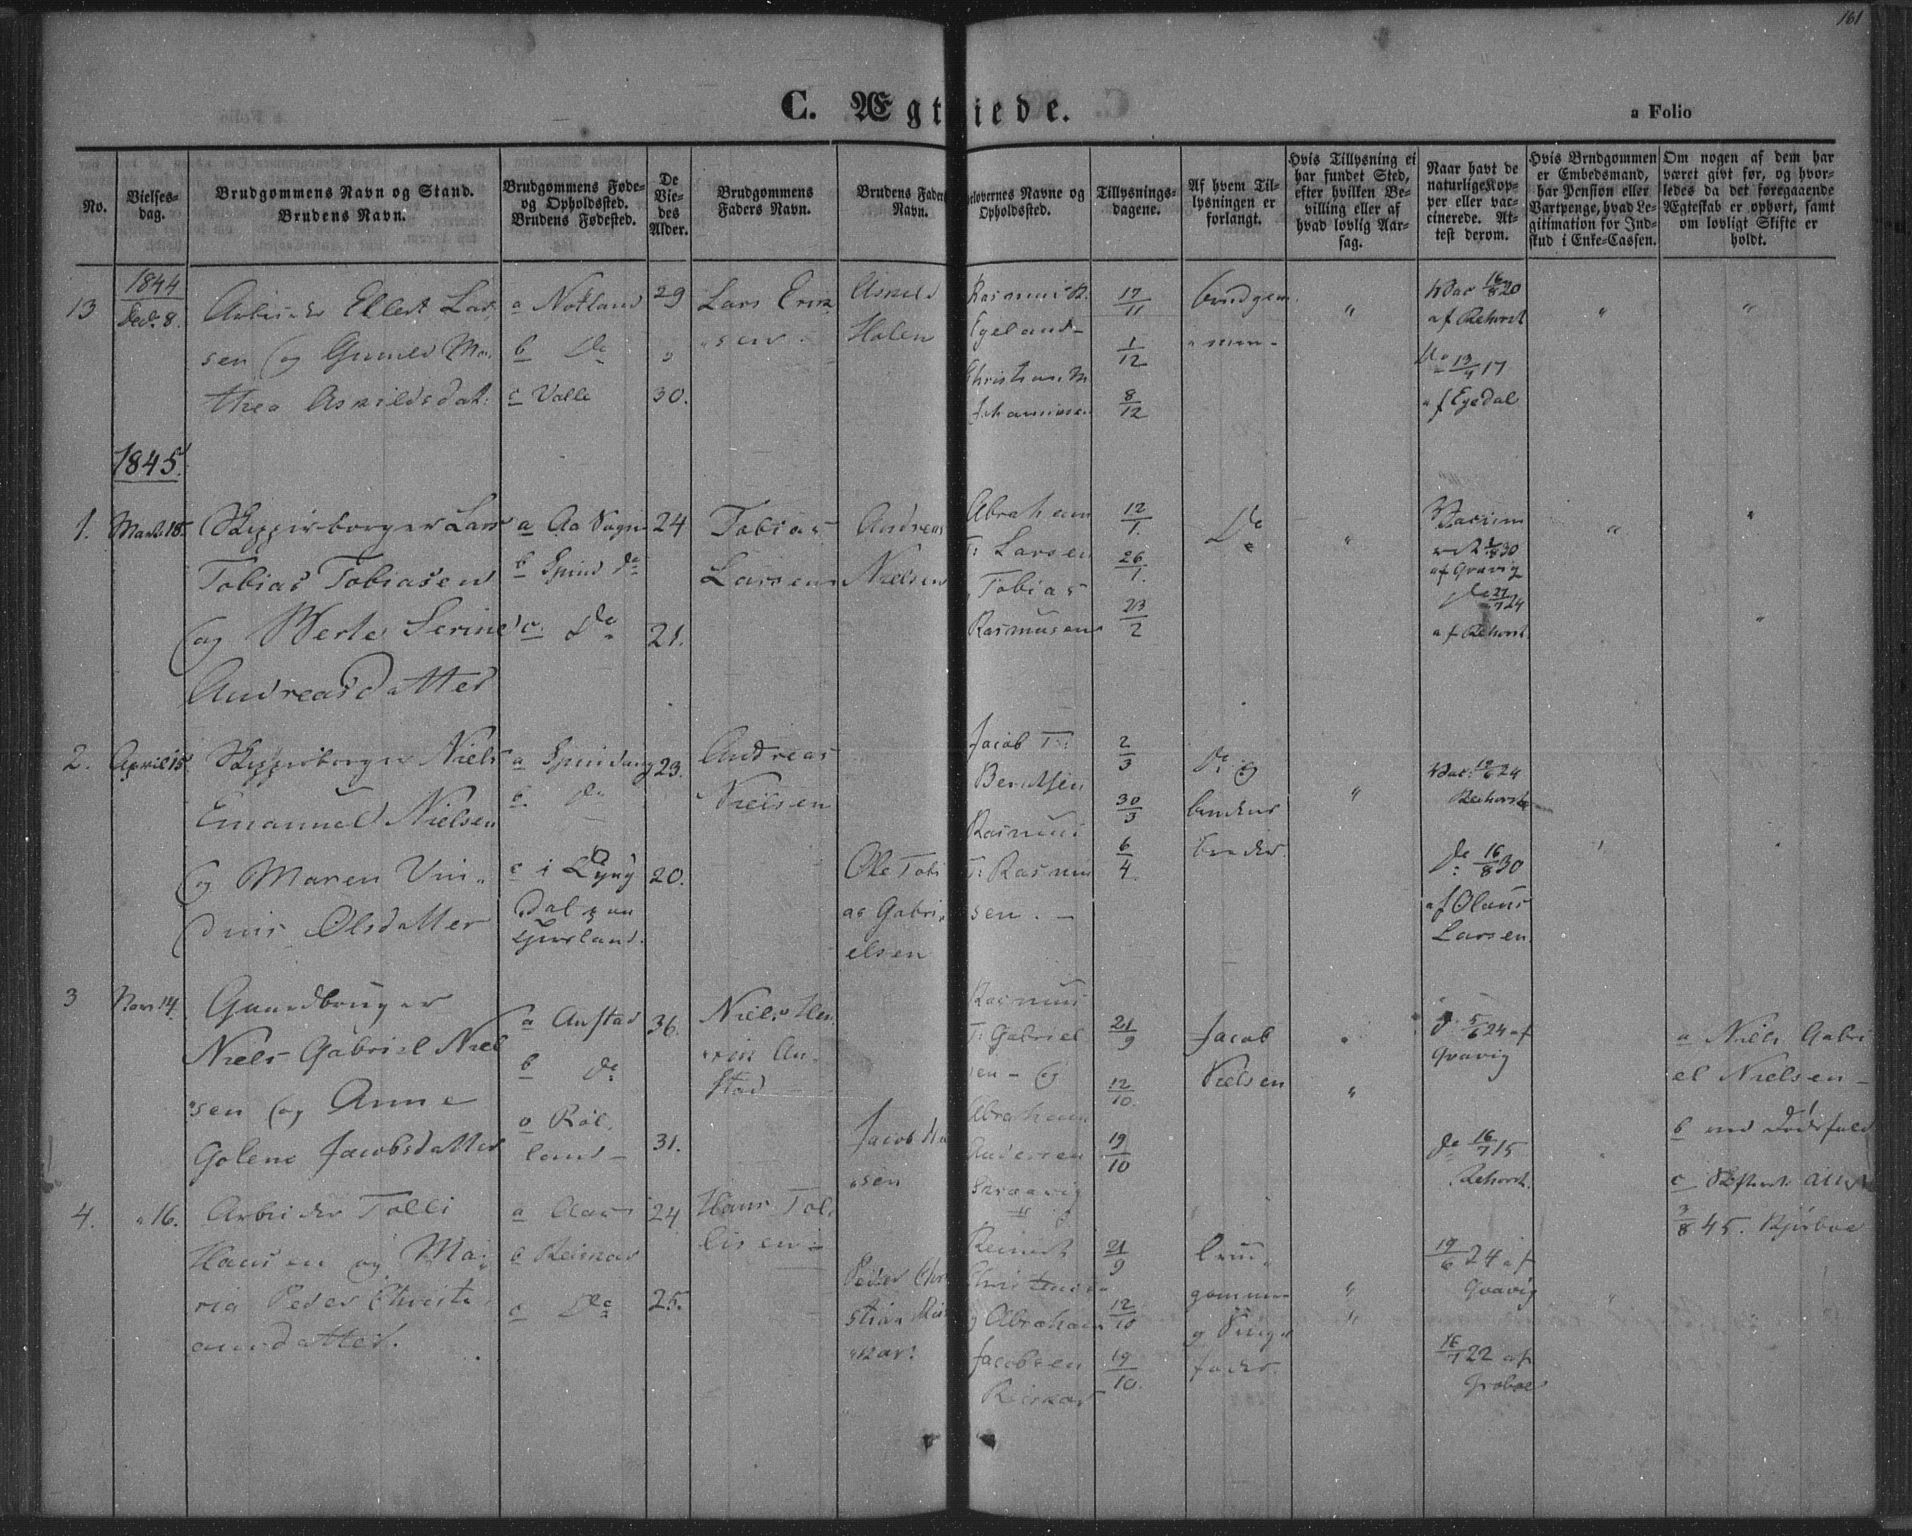 161
C. Ægteviede.
a Folio
No.
Vielses-
dag.
Brudgommens Navn og Stand.
Brudens Navn.
Brudgommens Føde-
og Opholdssted.
Brudens Fødested.
De
Vie-
des
Alder.
Brudgommens
Faders Navn.
Brudens Faders
Navn.
Forlovernes Navne og
Opholdssted.
Tillysnings-
dagene.
Af hvem Til-
lysningen er
forlangt.
Hvis Tillysning ei
har fundet Sted,
efter hvilken Be-
villing eller af
hvad lovlig Aar-
sag.
Naar havt de
naturlige Kop-
per eller vac-
cinerede. At-
test derom.
Hvis Brudgommen
er Embedsmand,
har Pension eller
Vartpenge, hvad Le-
gitimation for Ind-
skud i Enke-Cassen.
Om nogen af dem har
været gift før, og hvor-
ledes da det foregaaende
Ægteskab er ophørt, samt
om lovligt Skifte er
holdt.
1844
13 Decr 8.
Arbeider Ellert Lar
sen og Gunild Ma
thea Asnildsdat:
a Notland
b do
c Valle
29
30.
Lars Erik
sen
Asnild
Holen
Rasmus R.
Egeland
Christian M
Johannesen
17/11
1/12
8/12
brudgom
men
Vac 16/8 20
af Rehorst
do 13/4 17
af Egedal
1845.
1. Marts 18.
Skipperborger Lars
Tobias Tobiasen
og Berte Serine
Andreasdatter
a Aa Sogn
b Spind do
c. do
24
21.
Tobias
Larsen
Andreas
Nielsen
Abraham
T: Larsen
Tobias
Rasmusen
12/1.
26/1.
23/2
do
Vaccine
ret 1/8 30
af Gravig
do 27/7 24
af Rehorst.
2. April 15.
Skipperborger Niels
Emanuel Nielsen
og Maren Vin
dnis Olsdatter
a Spindang
b. do
c i Lyng
dal
23.
20.
Andreas
Nielsen
Ole Tobi
as Gabri
elsen
Jacob T:
Berntsen
Rasmus
T: Rasmus
sen. -
2/3
30/3
6/4.
do og
brudens
broder
Vac: 19/6 24
Rehorst
do 16/8 30
af Olaus
Larsen
3 Novr 14.
Gaardbruger
Niels Gabriel Niel
sen og Anne
Golene Jacobsdatter
a Anstad
b do
c Røl
land
36.
31.
Niels Hen
rik An
stad
Jacob
sen
Rasmus
T: Gabriel
sen - og
Abraham
Andersen
21/9
12/10.
19/10
Jacob
Nielsen
do 5/6 24 af
Gravig
do 16/7 15
Rehorst.
a Niels Gabri
el Nielsen
b ved Dødsfald
c Skifteret Attest
3/8 45.
4. " 16.
Arbeider Tolli
Hansen og Ma
ria Peder Christi
ansdatter.
b Reisnas
c do
24
25.
Hans Tol
lisen
Peder Chri
stian
Reinert
og Abraham
Jacobsen
21/9
12/10
19/10.
brud
gommen
fader
19/6 24 af
Gravig
16/7 22 af